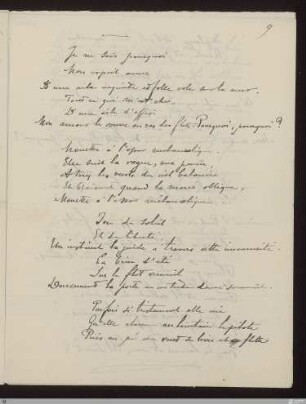 9
Je ne sais pourquoi
Mon esprit amer
D'une aile inquiète et folle vole sur la mer.
Tout ce qui m'est cher,
D'une aile d'effroi
Mon amour le couve au ras des flots. Pourquoi, pourquoi ?
Mouette à l'essor mélancolique,
Elle suit la vague, ma pensée,
À tous les vents du ciel balancée
Et biaisant quand la marée oblique,
Mouette à l'essor mélancolique.
Ivre de soleil
Et de liberté,
Un instinct la guide à travers cette immensité.
La brise d'été
Sur le flot vermeil
Doucement la porte en un tiède demi-sommeil.
Parfois si tristement elle crie
Qu'elle alarme au lointain le pilote
Puis au gré du vent se livre et flotte